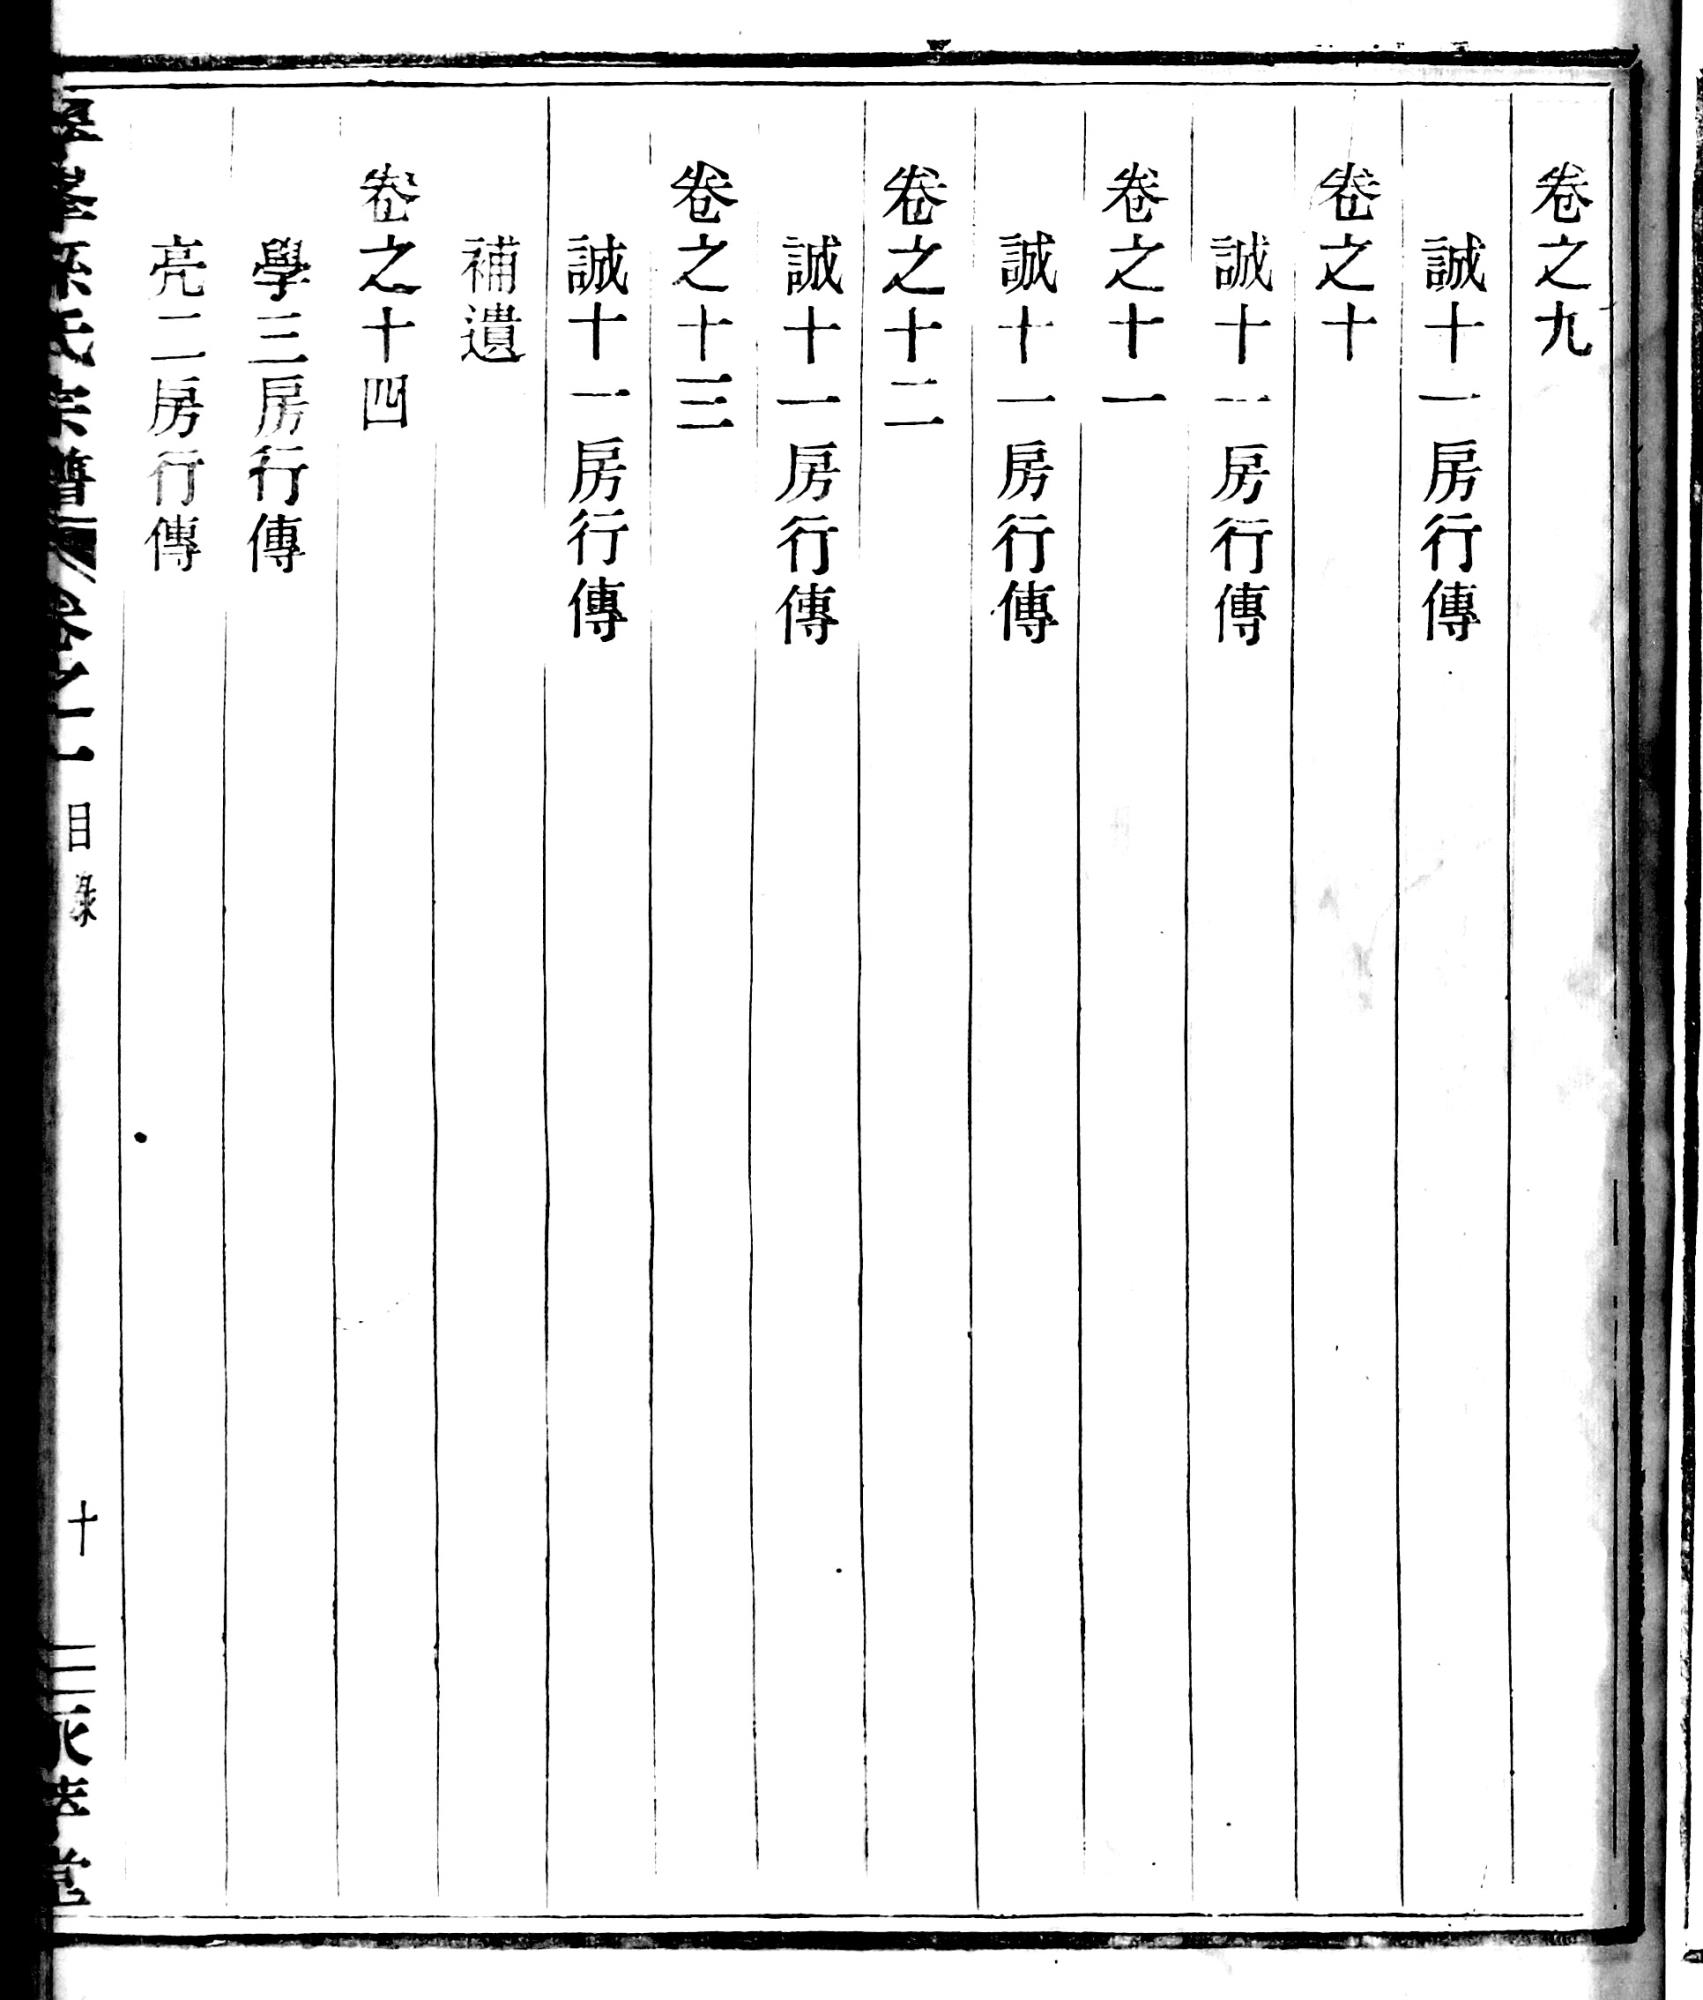 卷之九
誠十一房行傳
卷之十
誠十一房行傳
卷之十一
誠十一房行傳
卷之十二
誠十一房行傳
卷之十三
誠十一房行傳
補遺
卷之十四
學三房行傳
亮二房行傳
孫氏宗譜 卷之一 目录 十 堂